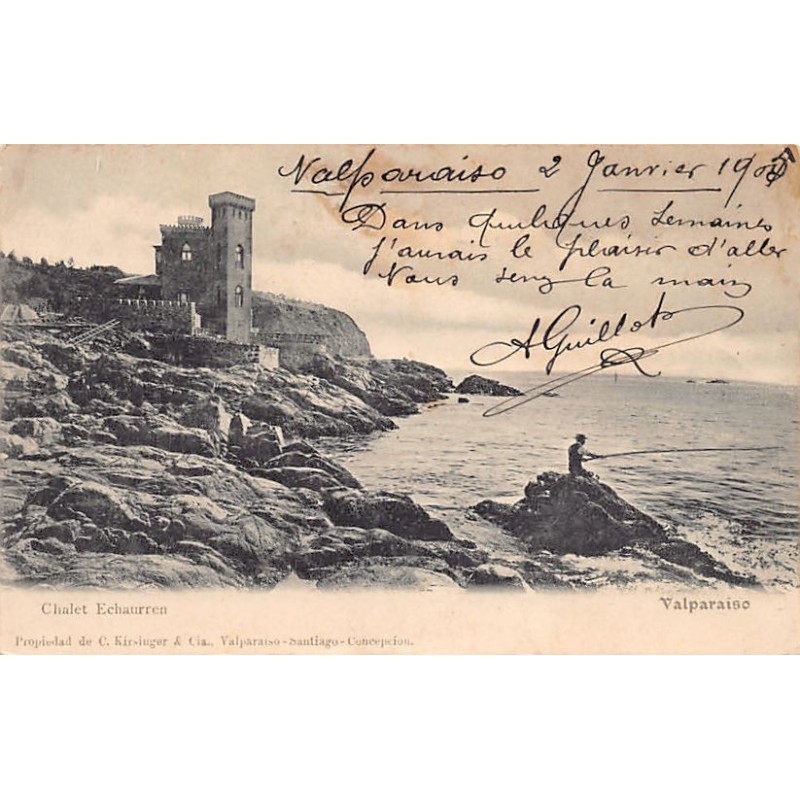 Valparaiso 2 Janvier 1905
Dans quelques semaines
j'aurais le plaisir d'aller
Vous serrez la main
AGuillot
Chalet Echaurren
Valparaiso
Propiedad de C. Kirsinger & Cia., Valparaiso-Santiago-Concepcion.